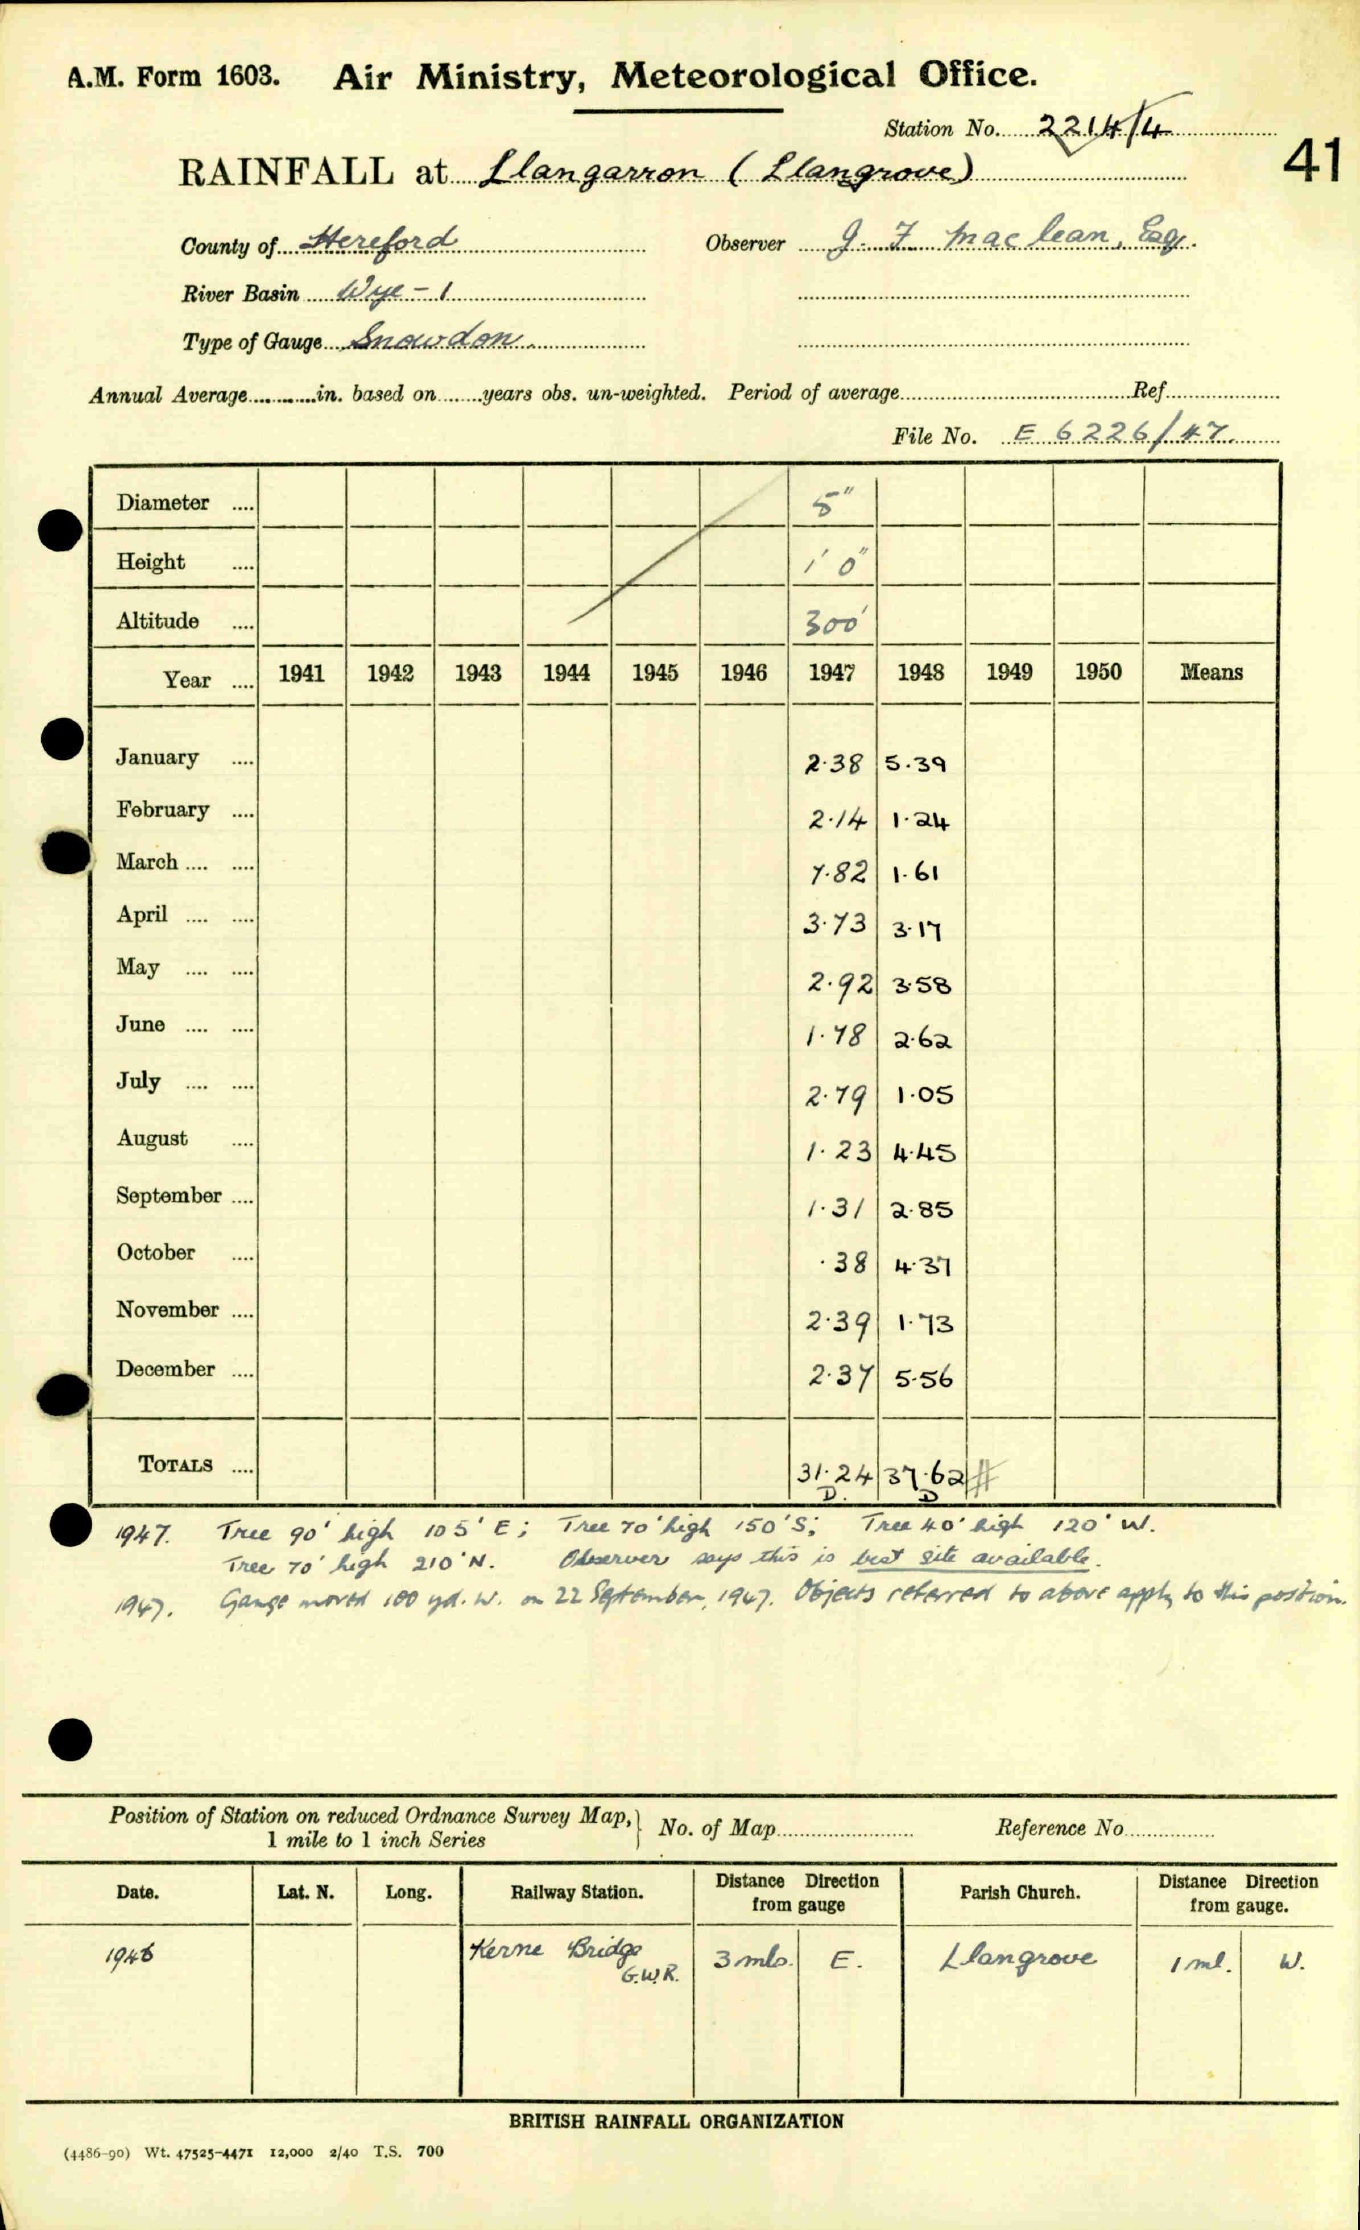 A.M. Form 1603. Air Ministry, Meteorological Office.
Station No. 2214/4
41
RAINFALL at Llangarron (Llangrove)
County of Hereford Observer J. F. Maclean, Esq.
River Basin Wye - 1
Type of Gauge Snowdon.
Annual Average in. based on years obs. un-weighted. Period of average Ref
File No. E 6226/47.
Diameter 5"
Height 1' 0"
Altitude 300'
Year 1941 1942 1943 1944 1945 1946 1947 1948 1949 1950 Means
January 2.38 5.39
February 2.14 1.24
March 7.82 1.61
April 3.73 3.17
May 2.92 3.58
June 1.78 2.62
July 2.79 1.05
August 1.23 4.45
September 1.31 2.85
October .38 4.37
November 2.39 1.73
December 2.37 5.56
TOTALS 31.24 37.62 #
D. D
1947. Tree 90' high 105' E; Tree 70' high 150' S; Tree 40' high 120' W.
Tree 70' high 210' N. Observer says this is best site available.
1947. Gauge moved 100 yd. W. on 22 September, 1947. Objects referred to above apply to this position.
Position of Station on reduced Ordnance Survey Map, } No. of Map Reference No
1 mile to 1 inch Series
Date. Lat. N. Long. Railway Station. Distance Direction from gauge Parish Church. Distance Direction from gauge.
1946 Kerne Bridge G.W.R. 3 mls. E. Llangrove 1 ml. W.
BRITISH RAINFALL ORGANIZATION
(4486-90) Wt. 47525-4471 12,000 2/40 T.S. 700